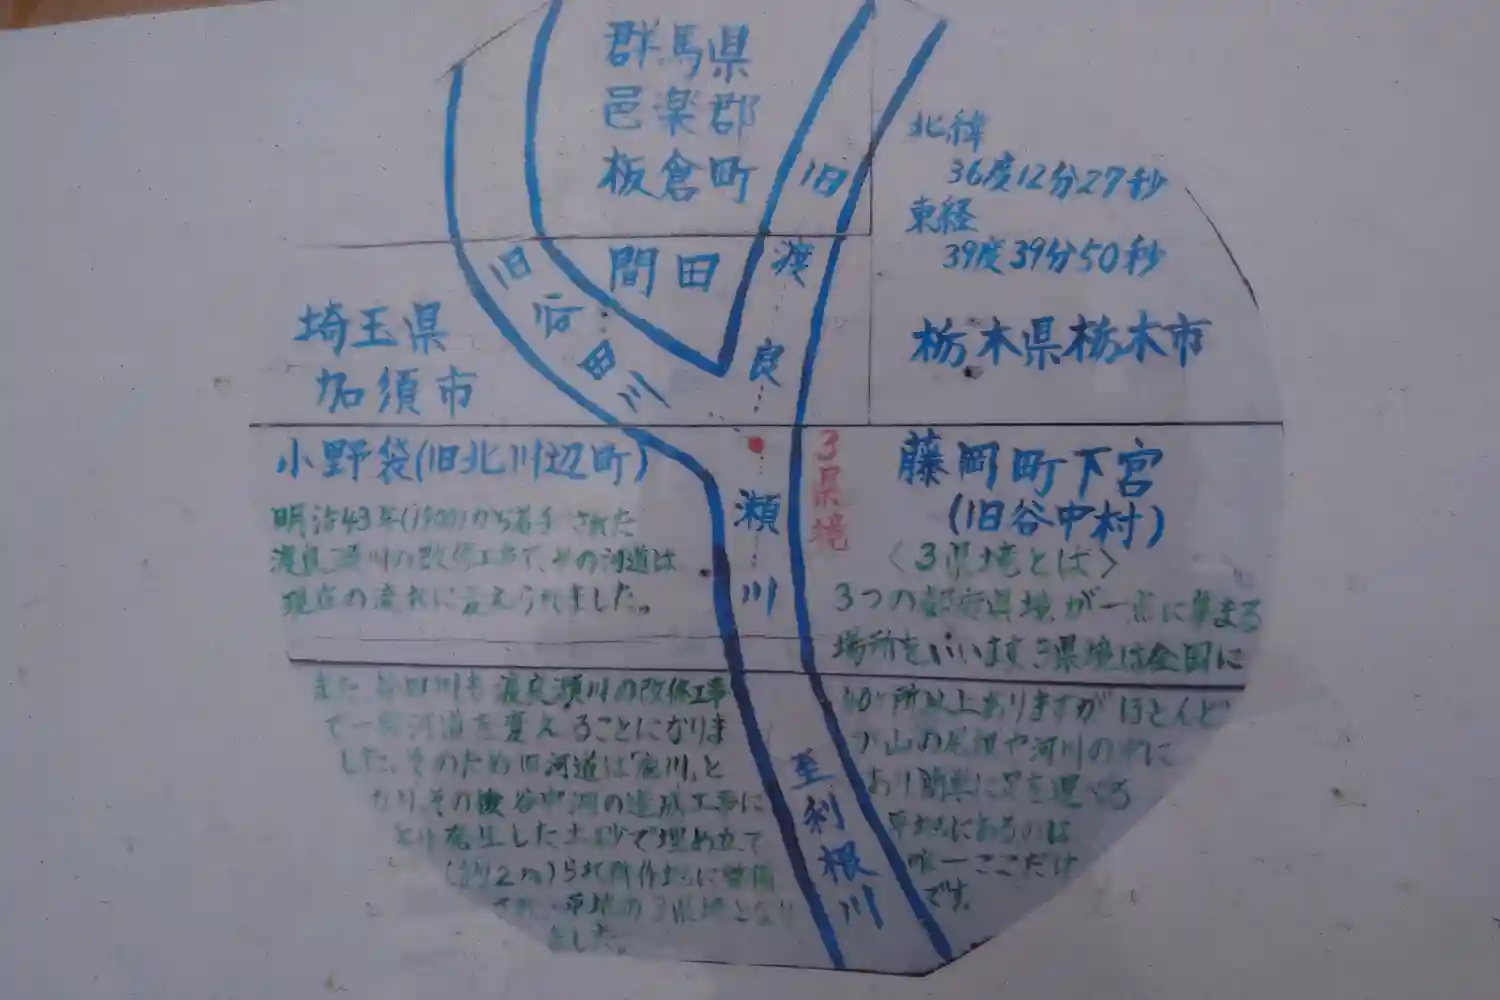 群馬県
邑楽郡
板倉町
間田
北緯
36度12分27秒
東経
39度39分50秒
栃木県栃木市
藤岡町下宮
(旧谷中村)
埼玉県
加須市
小野袋(旧北川辺町)
旧谷田川
旧渡良瀬川
3県境
至利根川
明治43年(1900)から着手された
渡良瀬川の改修工事で、その河道は
現在の流れに変えられました。
また、谷田川も渡良瀬川の改修工事
で一部河道を変えることになりま
した。そのため旧河道は「廃川」と
なり、その後谷中湖の造成工事に
より発生した土砂で埋め立て
(約2m)られ耕作地に整備
され、平地の3県境となり
ました。
〈3県境とは〉
3つの都府県境が一点に集まる
場所をいいます 3県境は全国に
40ヶ所以上ありますがほとんど
が山の尾根や河川の中に
あり簡単に足を運べる
平地にあるのは
唯一ここだけ
です。